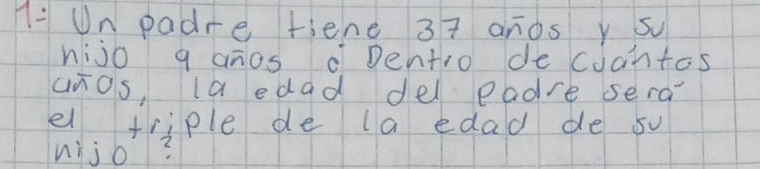 1= Un padre tiene 37 años y su
hijo 9 años ¿ Dentro de cuántos
años, la edad del padre será
el triple de la edad de su
hijo ?